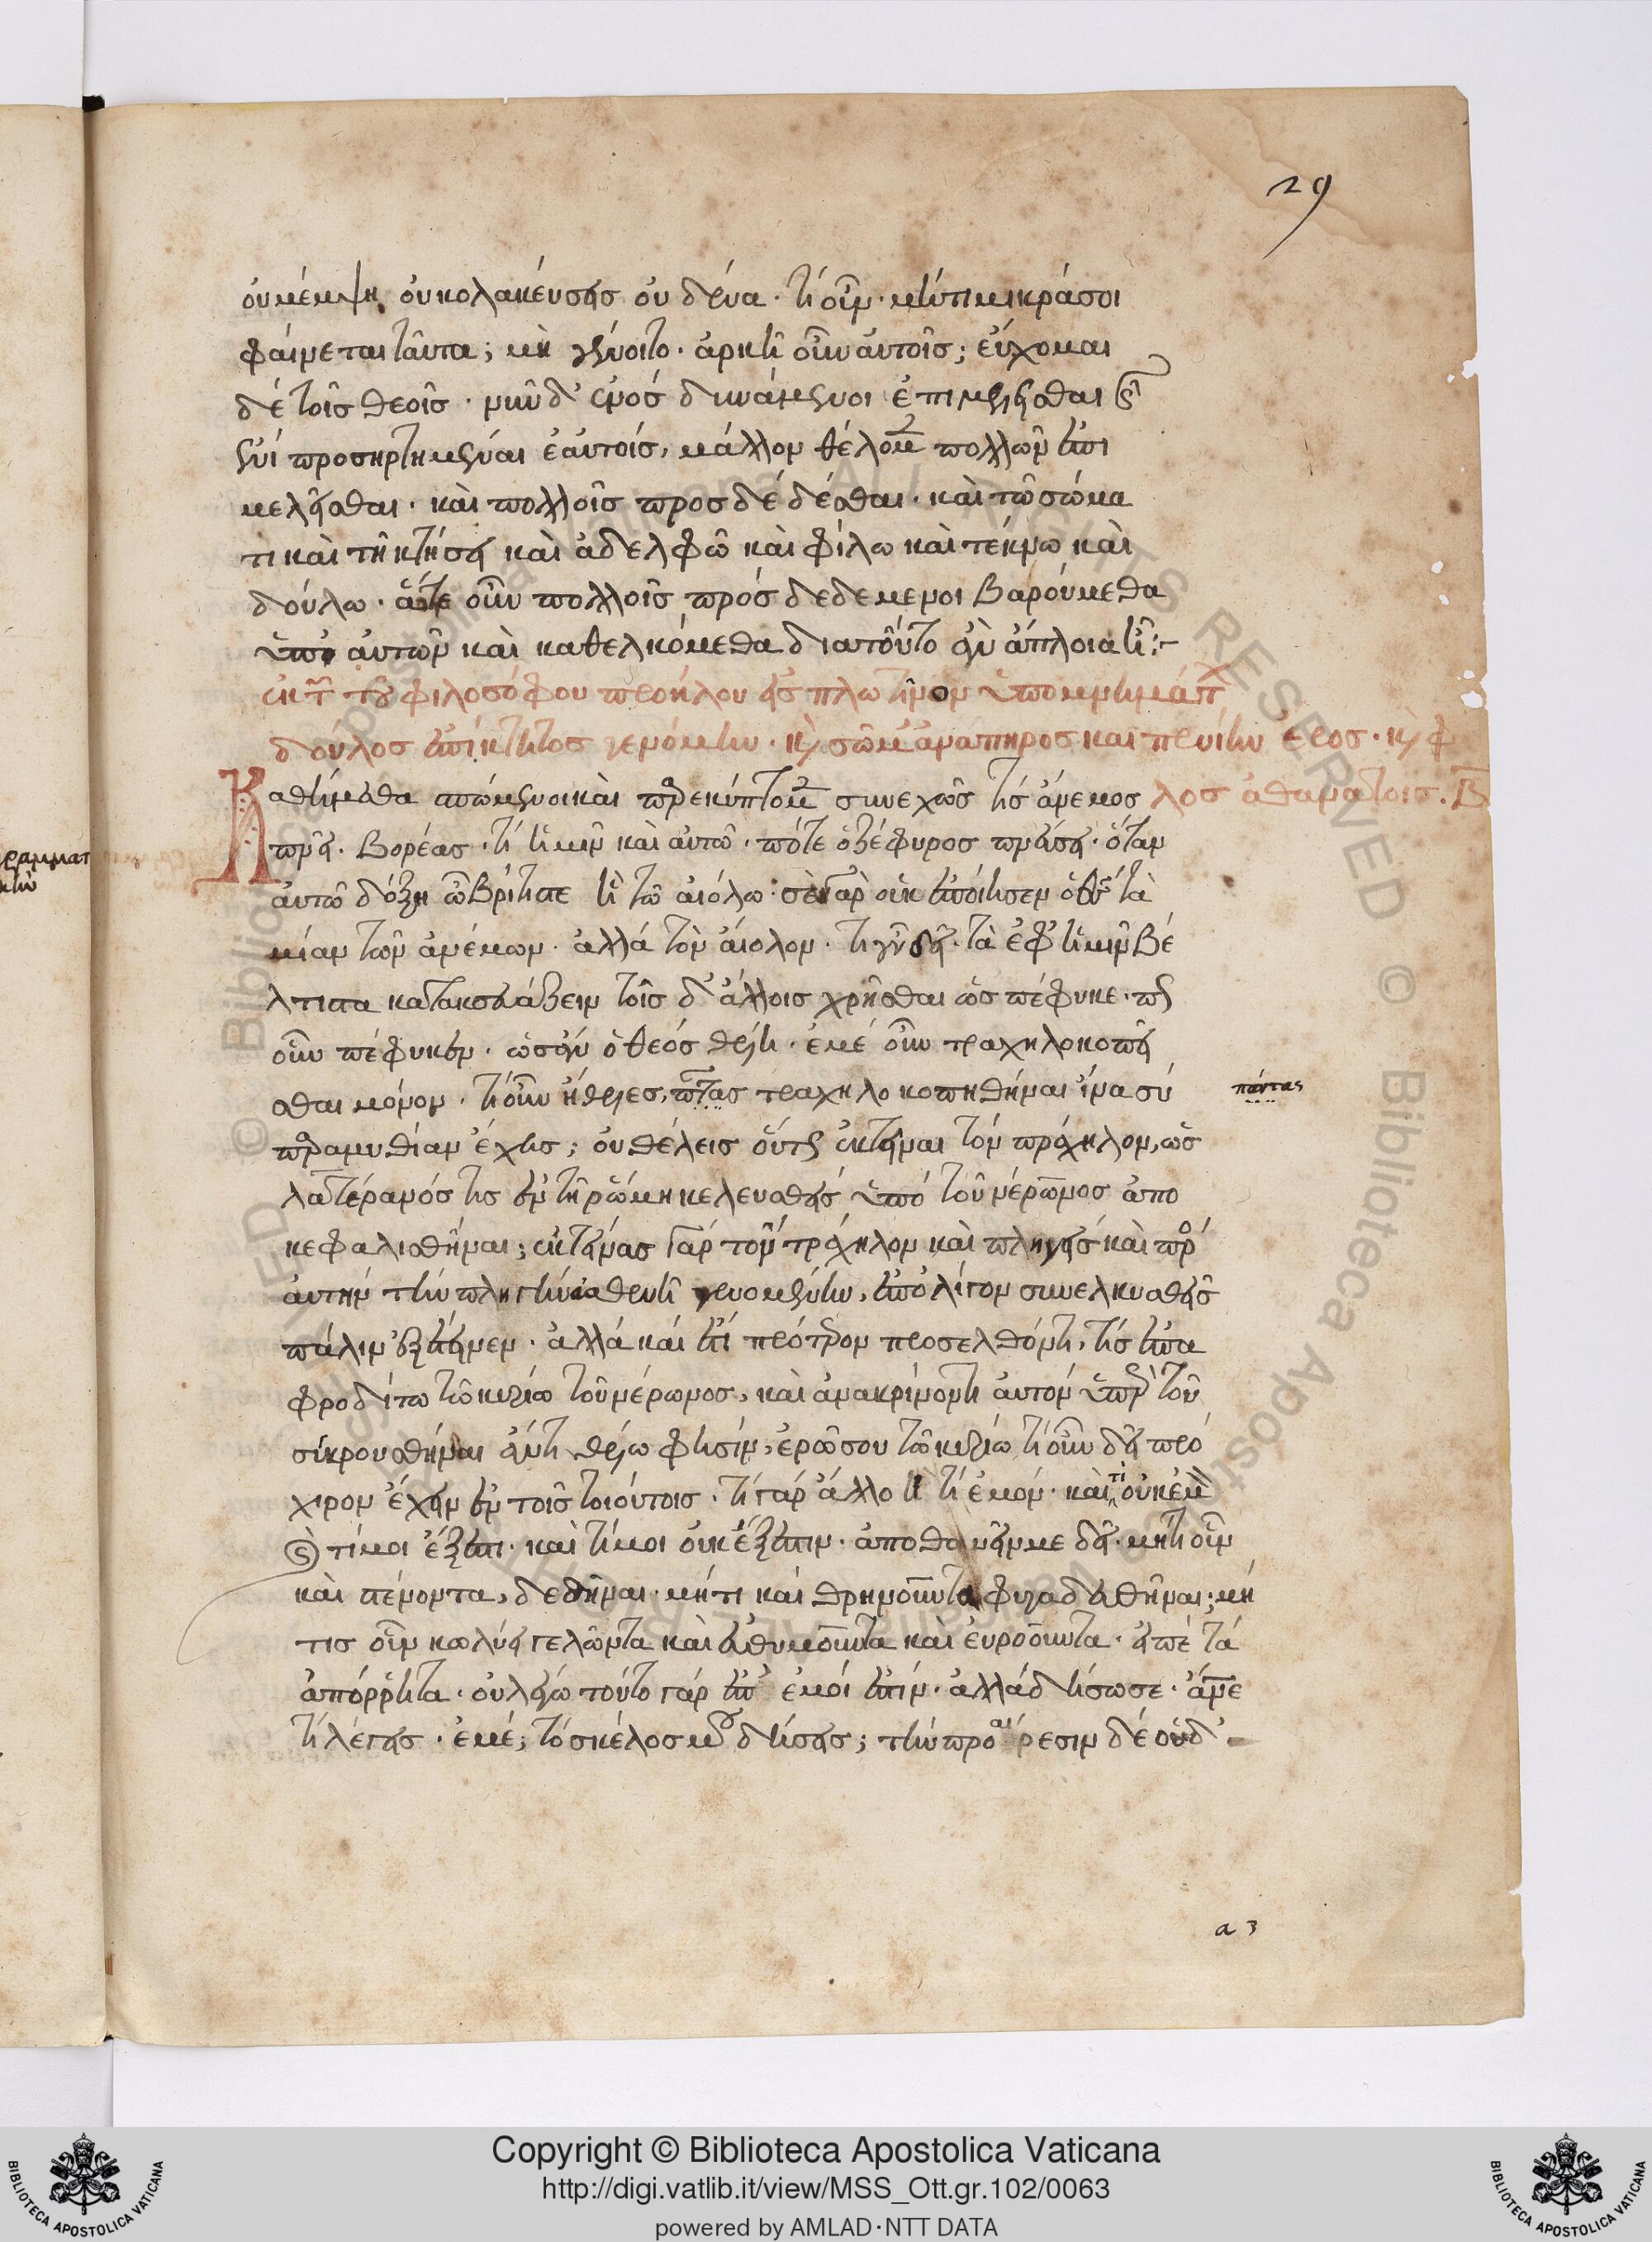 29
οὐ μέμψῃ οὐ κολακεύσεις οὐδένα. τί οὖν. μήτι μικρά σοι
φαίνεται ταῦτα; μὴ γένοιτο. ἀρκῇ οὖν αὐτοῖς; εὔχομαι
δὲ τοῖς θεοῖς. νῦν δ' ἑνὸς δυνάμενοι ἐπιμελεῖσθαι καὶ
ἑνὶ προσηρτημέναι ἑαυτοίς, μάλλον θέλομεν πολλῶν ἐπι
μελεῖσθαι. καὶ πολλοῖς προσδεδέσθαι. καὶ τῶ σώμα
τι καὶ τῆ κτήσει καὶ ἀδελφῶ καὶ φίλω καὶ τέκνω καὶ
δούλω. ἅτε οὖν πολλοῖς προσδεδεμενοι βαρούμεθα
ὑπὸ αὐτῶν καὶ καθελκόμεθα διατοῦτο ἂν ἄπλοια ἦ:
ἐκ τῶν τοῦ φιλοσόφου πρόκλου εἰς πλωτῖνον ὑπομνημάτ
δούλος ἐπίκτητος γενόμην. καὶ σῶμ' ἀναπηρος καὶ πενίην ἶρος. καὶ φ
λος ἀθανατοις.
Καθήμεθα σπώμενοι καὶ παρεκύπτομεν συνεχῶς τίς ἄνεμος
πνεῖ. βορέας. τί ἡμῖν καὶ αὐτῶ. πότε ὁ ζέφυρος πνεύσει. ὅταν
αὐτῶ δόξη ὦ βέλτιστε ἢ τῶ αἰόλω. σὲ γὰρ οὐκ ἐποίησεν ὁ θεὸς τα
μίαν τῶν ἀνέμων. ἀλλὰ τὸν αἴολον. τί οὖν δεῖ. τὰ ἐφ' ἡμῖν βέ
λτιστα κατασκευάζειν τοῖς δ' ἄλλοις χρῆσθαι ὡς πέφυκε. πῶς
οὖν πέφυκεν. ὡς ἂν ὁ θεός θέλη. ἐμέ οὖν τραχηλοκοπεῖ
σθαι μόνον. τί οὖν ἤθελες, πάντας τραχηλοκοπηθῆναι ἵνα σύ
πάντας
παραμυθίαν ἔχης; οὐ θέλεις οὕτως ἐκτεῖναι τόν τράχηλον, ὡς
λατερανός τις ἐν τῆ ῥώμη κελευσθείς ὑπό τοῦ νέρωνος ἀπο
κεφαλισθῆναι; ἐκτείνας γάρ τόν τράχηλον καὶ πληγείς καὶ παρ'
αὐτὴν τὴν πληγὴν ἀσθενῆ γενομένην, ἐπ' ὀλίγον συνελκυσθεὶς
πάλιν ἐξέτεινεν. ἀλλά καὶ ἔτι πρότερον προσελθόντι, τίς ἐπα
φροδίτω τῶ κυρίω τοῦ νέρωνος, καὶ ἀνακρίνοντι αὐτόν ὑπέρ τοῦ
σίκρουσθῆναι ἄντι θέλω φησίν, ἐρῶ σου τῶ κυρίω τί οὖν δεῖ πρό
χιρον ἔχειν ἐν τοῖς τοιούτοις. τί γάρ ἄλλο ἢ τί ἐμόν. καὶ τί οὐκ ἐμὸν
καὶ τί μοι ἔξεστι. καὶ τί μοι οὐκ ἔξεστιν. ἀποθανεῖν με δεῖ. μήτι οὖν
καὶ στένοντα, δεθῆναι. μήτι καὶ θρηνοῦντα φυγαδευθῆναι; μή
τις οὖν κωλύει γελῶντα καὶ εὐθυμοῦντα καὶ εὐροοῦντα. εἰπὲ τά
ἀπόρρητα. οὐ λέγω τοῦτο γάρ ἐπ' ἐμοί ἐστίν. ἀλλά δήσω σε. ἄνθρωπε
τί λέγεις. ἐμέ; τό σκέλος μου δήσεις; τὴν προαίρεσιν δέ οὐδ'
a 3
Copyright © Biblioteca Apostolica Vaticana
http://digi.vatlib.it/view/MSS_Ott.gr.102/0063
powered by AMLAD·NTT DATA
BIBLIOTECA APOSTOLICA VATICANA
BIBLIOTECA APOSTOLICA VATICANA